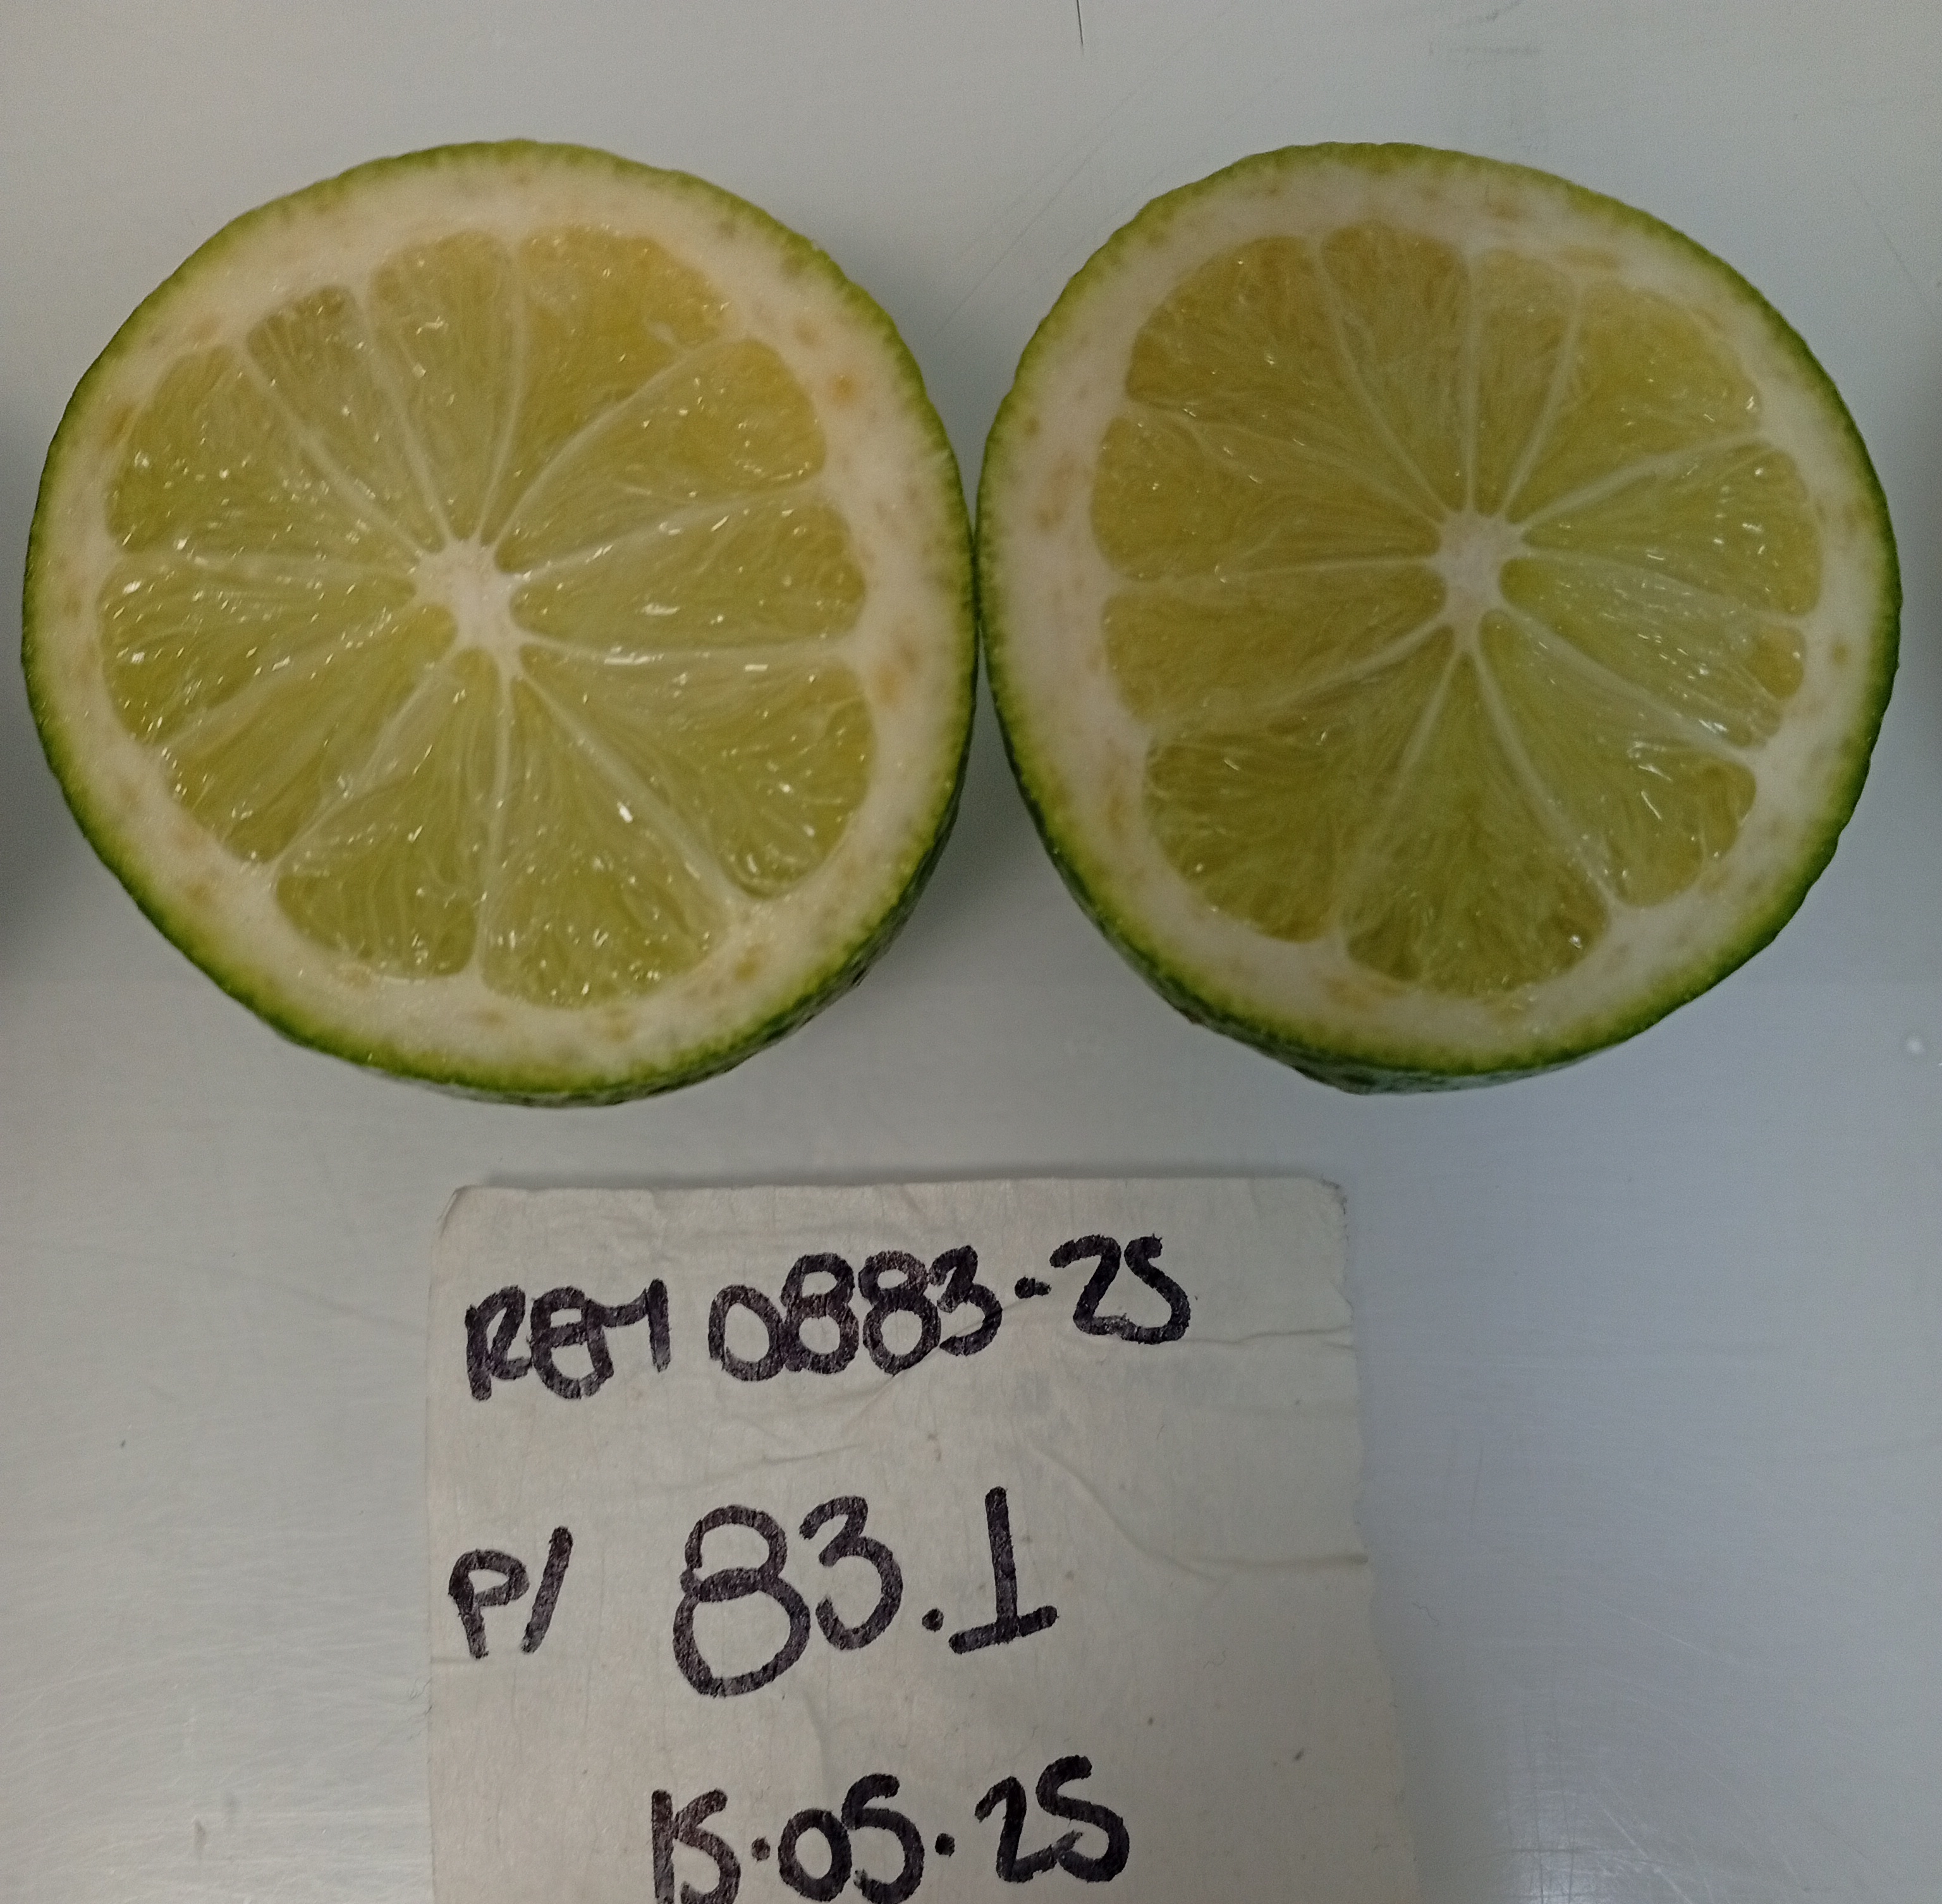 REM 0883-25
P/ 83.1
15.05.25